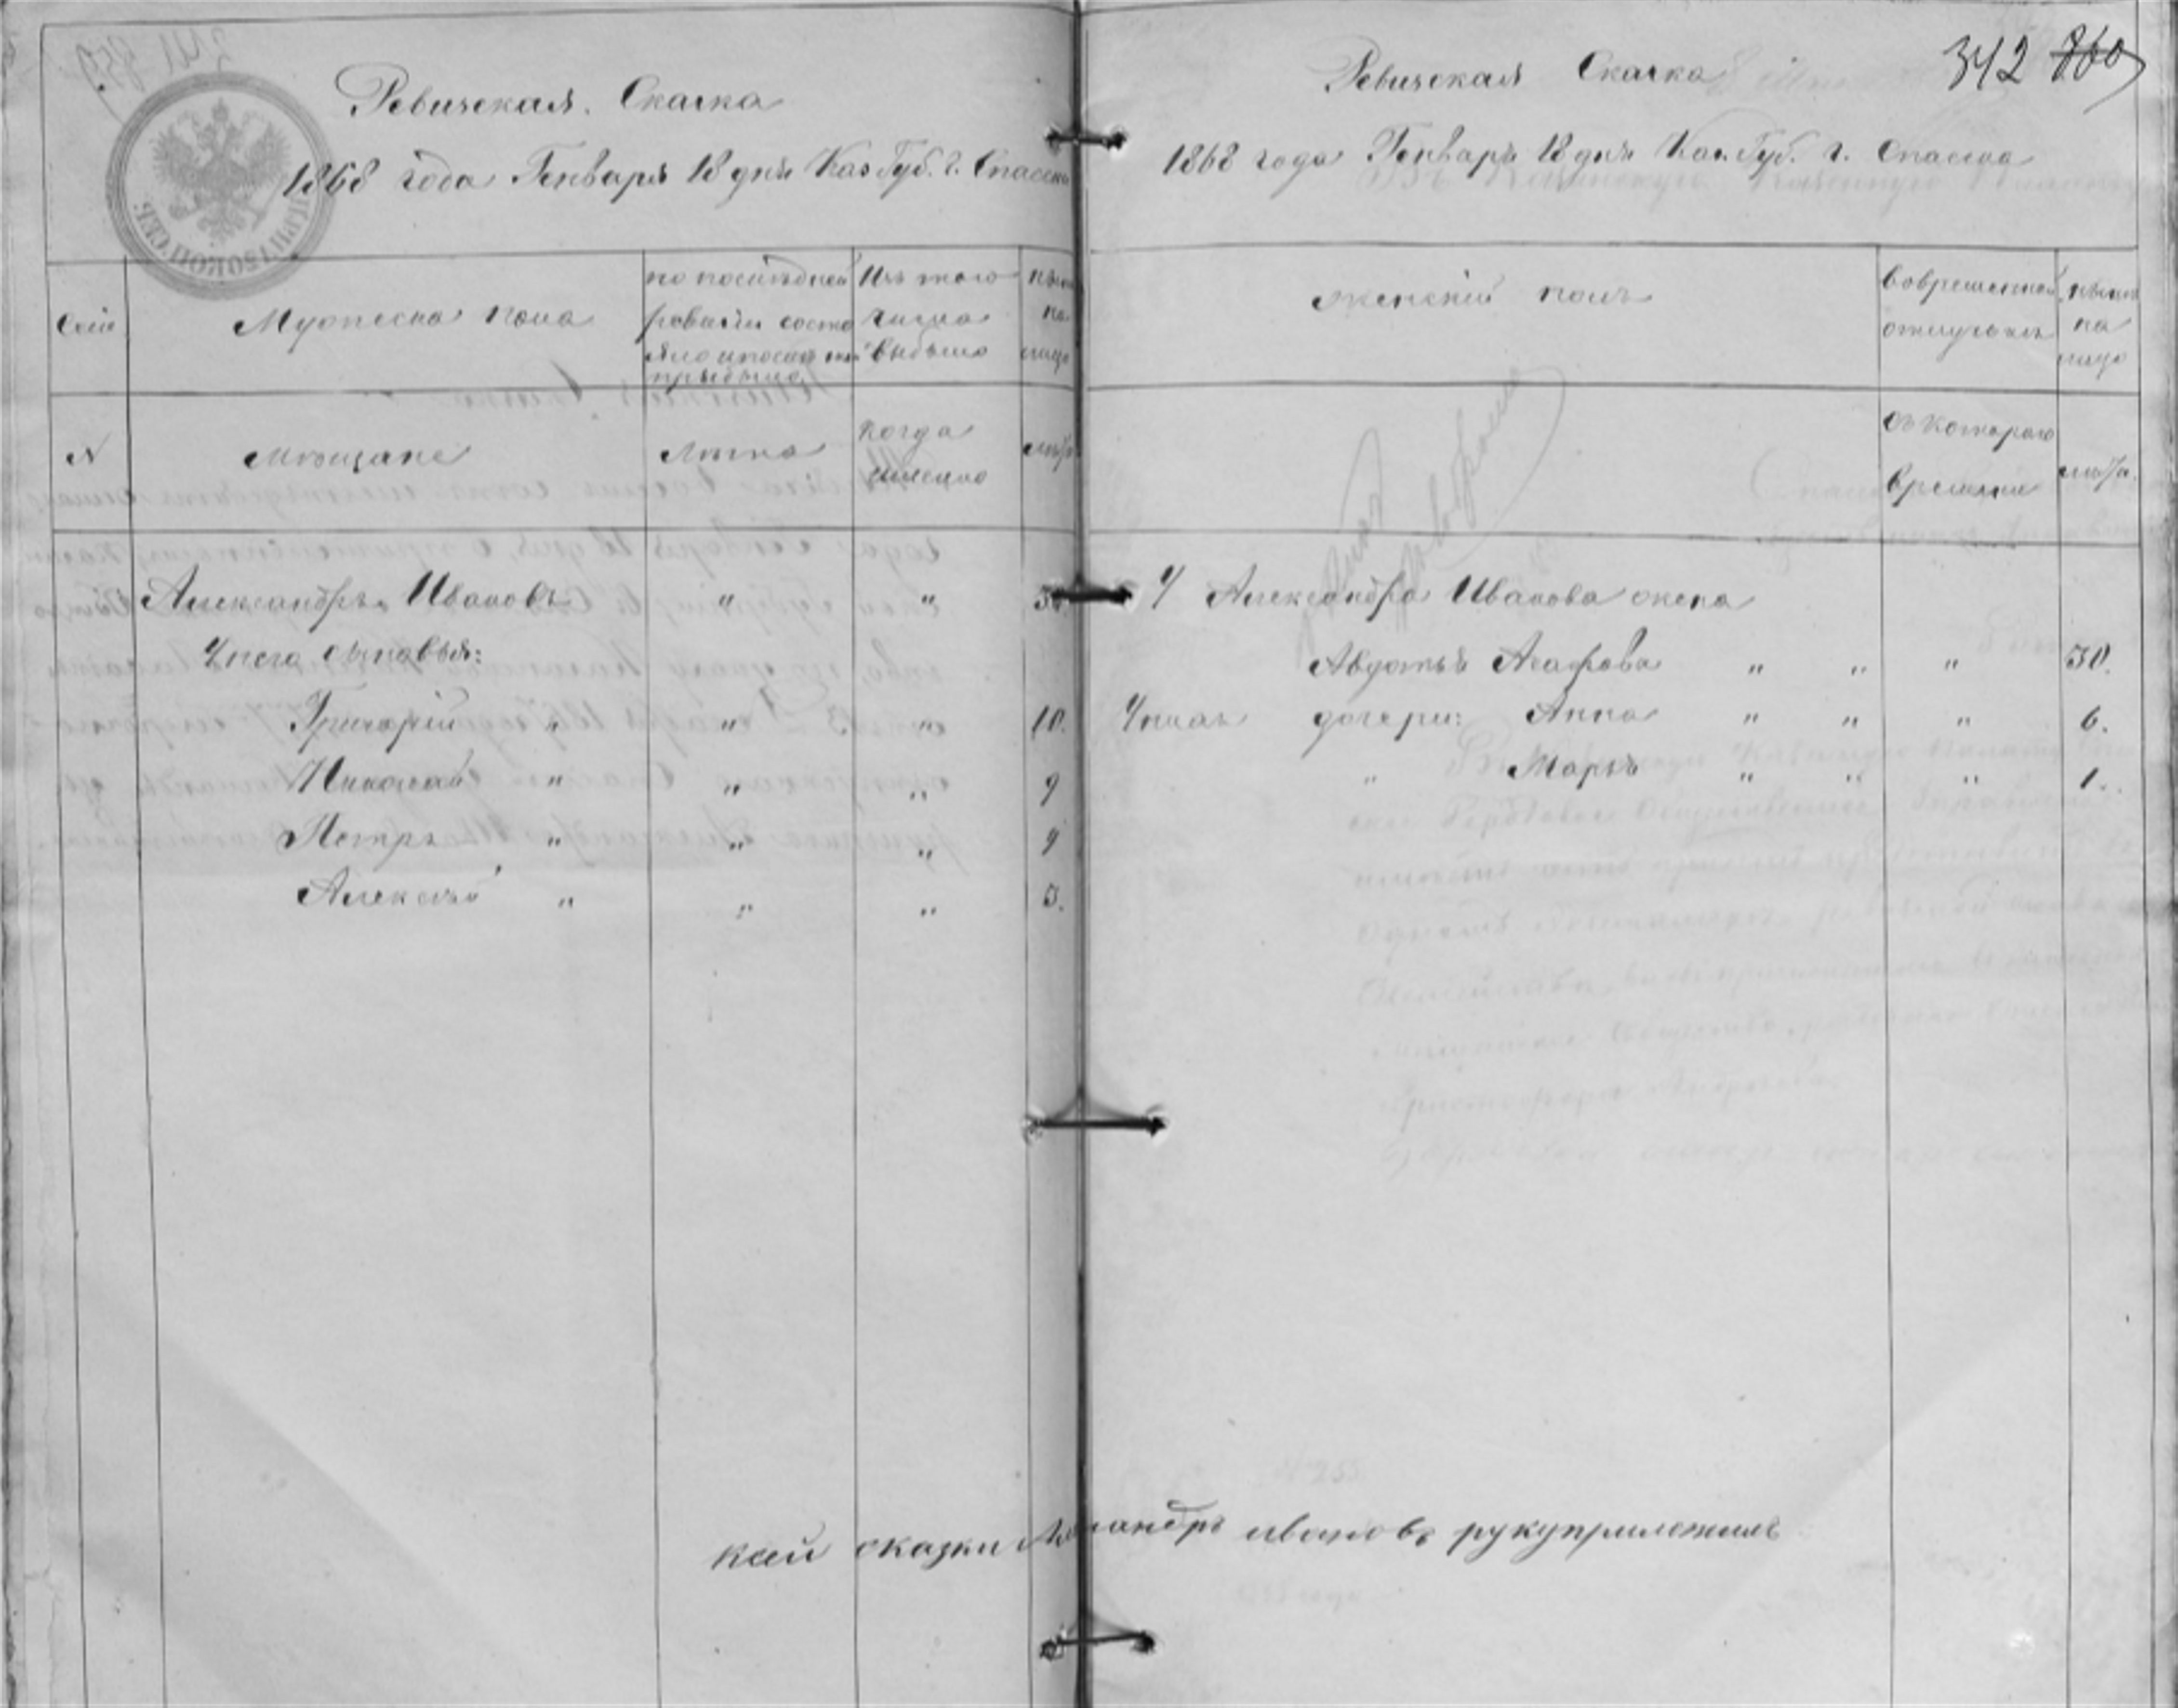 Ревизская Скаска
1868 года Генваря 18 дня Каз Губ. г. Спасска
Сем.
Мужеска пола
по последней
ревизіи состо
яло и после то
прибыло
Изъ того
числа
выбыло
ныне
на
лицо
N
Мѣщане
Лѣта
когда
имянно
лѣта
Александръ Ивановъ " "
У него сыновья:
Григорій " " " 10.
Николай " " " 9
Петръ " " "
Алексѣй " " " 5.
342 860
Ревизская Скаска
1868 года Генваря 18 дня Каз. Губ. г. Спасска
женскій полъ
Во временной
отлучкѣ
ныне
на
лицо
Съ котораго
времени
лѣта.
У Александра Иванова жена
Авдотья Агафова " " " 30.
У нихъ дочери: Анна " " " 6.
" Марья " " " 1.
кай сказки Александръ ивановъ рукуприложилъ